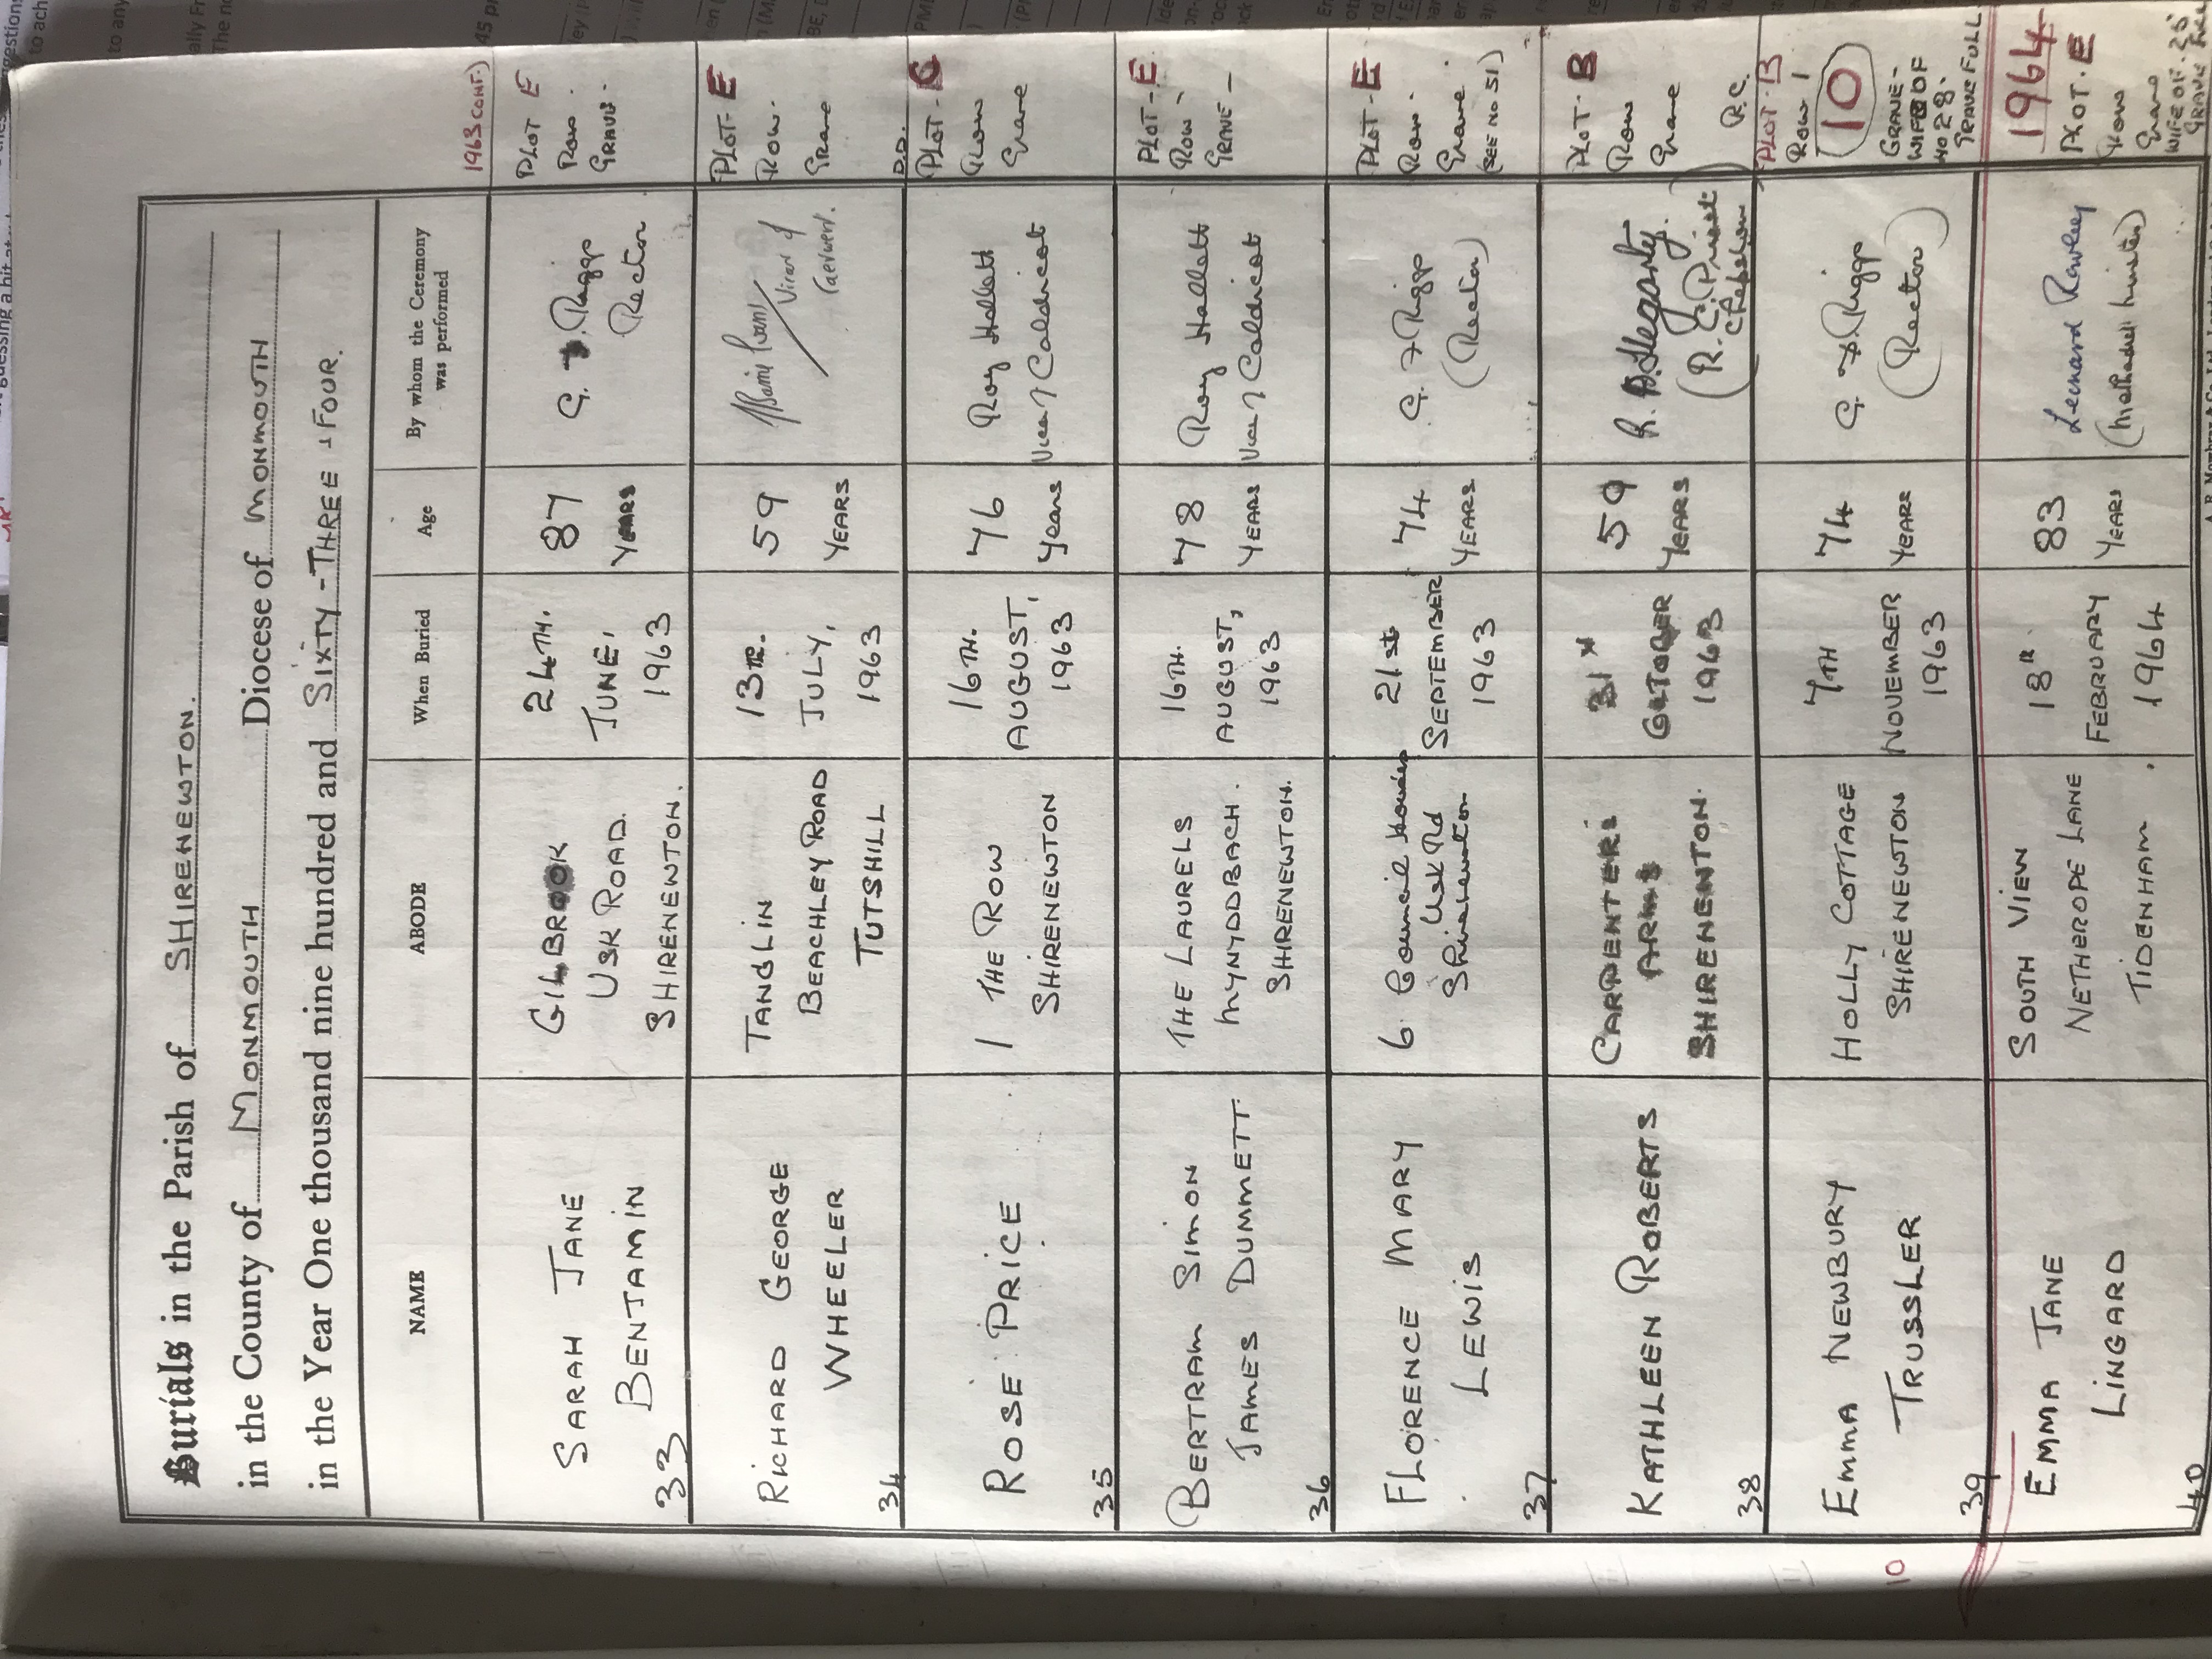 Burials in the Parish of SHIRENEWTON.
in the County of MONMOUTH Diocese of MONMOUTH
in the Year One thousand nine hundred and SIXTY-THREE + FOUR.
NAME
ABODE
When Buried
Age
By whom the Ceremony
was performed
1963 CONT.)
SARAH JANE
BENJAMIN
33
GILBROOK
USK ROAD.
SHIRENEWTON.
24TH.
JUNE,
1963
87
YEARS
Rector
PLOT E
ROW.
GRAVE.
RICHARD GEORGE
WHEELER
34
TANGLIN
BEACHLEY ROAD
TUTSHILL
13TH.
JULY,
1963
59
YEARS
Vicar of
Caerwent.
PLOT-E
Row.
Grave
ROSE PRICE
35
1 THE ROW
SHIRENEWTON
16TH.
AUGUST,
1963
76
years
Roy Hallett
Vicar of Caldicot
D.D.
PLOT-C
Row
Grave
BERTRAM SIMON
JAMES DUMMETT
36
THE LAURELS
MYNYDDBACH.
SHIRENEWTON.
16TH.
AUGUST,
1963
78
YEARS
Roy Hallett
Vicar of Caldicot
PLOT-E
ROW-
GRAVE-
FLORENCE MARY
LEWIS
37
6 Council Houses
Usk Rd
Shirenewton
21st
SEPTEMBER
1963
74
YEARS
(Rector)
PLOT-E
Row.
Grave.
(SEE NO 51)
KATHLEEN ROBERTS
38
CARPENTERS
ARMS
SHIRENEWTON.
31st
OCTOBER
1963
59
YEARS
Hegarty.
(R.C. Priest
Chepstow)
PLOT-B
Row
Grave
R.C.
EMMA NEWBURY
TRUSSLER
39
HOLLY COTTAGE
SHIRENEWTON
7TH
NOVEMBER
1963
74
YEARS
(Rector)
PLOT-B
ROW 1
10
GRAVE-
WIFE OF
NO 28.
GRAVE FULL.
10
1964
EMMA JANE
LINGARD
40
SOUTH VIEW
NETHEROPE LANE
TIDENHAM.
18th
FEBRUARY
1964
83
YEARS
Leonard Rowley
(Methodist Minister)
PLOT.E
Row
Grave
WIFE OF 25